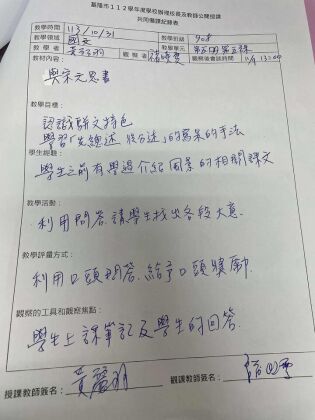 基隆市112學年度學校辦理校長及教師公開授課
共同備課紀錄表
教學時間 113/10/31
教學領域 國文 教學班級 908
教學者 黃 觀察者 教學單元 第五冊第五課
教材內容： 觀察後會談時間
與宋元思書
教學目標：
認識駢文特色
學習「先總述 後分述」的寫景的手法
學生經驗：
學生之前有學過介紹風景的相關課文
教學活動：
利用問答, 請學生找出各段大意.
教學評量方式：
利用口頭問答, 給予口頭獎勵.
觀察的工具和觀察焦點：
學生上課筆記及學生的回答.
授課教師簽名： 黃 觀課教師簽名：